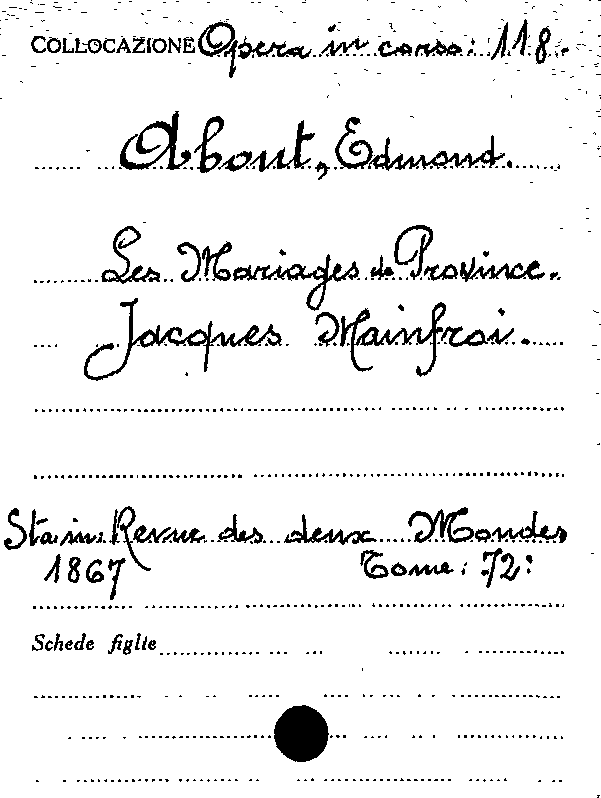 COLLOCAZIONE Opera in corso: 118.
About, Edmond.
Les Mariages de Province.
Jacques Mainfroi.
Sta in: Revue des deux Mondes
1867 Tome: 72:
Schede figlie